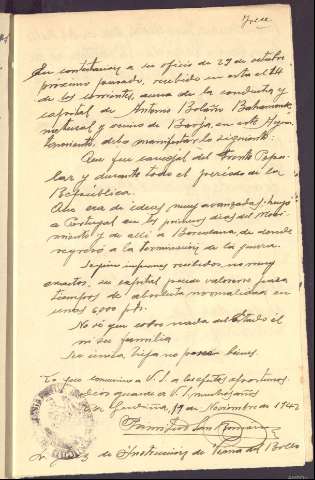 Trece.
En contestacion a su oficio de 29 de octubre
proximo pasado, recibido en esta el 14
de los corrientes, acerca de la conducta y
capital de Antonio Bolaño Bahamonde
natural y vecino de Barja, en este Ayun-
tamiento, debo manifestar lo siguiente:
Que fue concejal del Frente Popu-
lar y durante todo el periodo de la
Republica.
Que era de ideas muy avanzadas; huyó
a Portugal en los primeros dias del Movi-
miento y de alli a Barcelona de donde
regresó a la terminacion de la guerra.
Según informes recibidos, no muy
exactos, su capital puede valorarse para
tiempos de absoluta normalidad en
unos 6,000 pts.
No sé que cobre nada del Estado él
ni su familia
no poseen bienes.
Lo que comunico a V.I. a los efectos oportunos.
Dios guarde a V.I. muchos años
19 de Noviembre de 194
Juez de Instruccion de Viana del Bollo